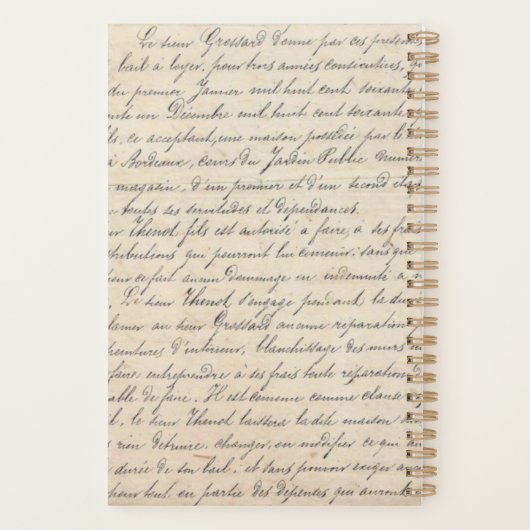 Le sieur Grossard donne par ces présentes
bail à loyer, pour trois années consécutives, q
du premier Janvier mil huit cent soixante
nte un Décembre mil huit cent soixante
ils, ce acceptant, une maison possédée par le
à Bordeaux, cours du Jardin Public numér
magasin, d'un premier et d'un second éta
toutes ses servitudes et dépendances.
ur Thenot fils est autorisé à faire, à ses frai
tributions qui pourront lui convenir; sans que
ce fait aucun dommage ou indemnité à
Le sieur Thenot s'engage pendant la duré
lamer au sieur Grossard aucune réparation
peintures d'intérieur, blanchissage des murs
faire entreprendre à ses frais toute réparation
able de faire. Il est convenu comme clause
l, le sieur Thenot laissera la dite maison
rien détruire, changer, ou modifier ce qui au
durée de son bail; et sans pouvoir exiger
pour tout ou partie des dépenses qui auront